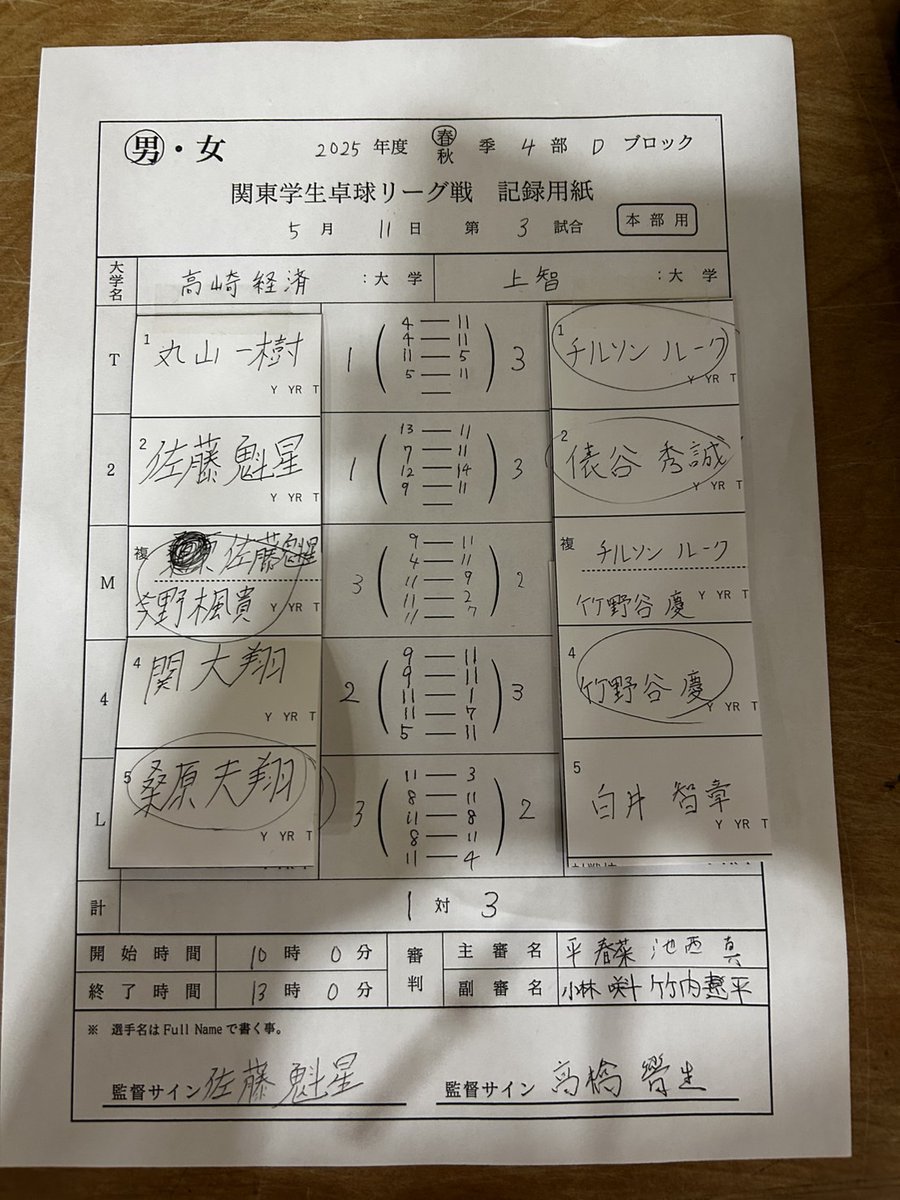 男・女 2025 年度 春 秋 季 4 部 D ブロック
関東学生卓球リーグ戦 記録用紙
5 月 11 日 第 3 試合 本部用
大学名 高崎経済 :大学 上智 :大学
T 1 丸山 一樹 Y YR T 1 ( 4 — 11 ) 3 1 チルソン ルーク Y YR T
4 — 11
11 — 5
5 — 11
—
2 2 佐藤 魁星 Y YR T 1 ( 13 — 11 ) 3 2 俵谷 秀誠 Y YR T
7 — 11
12 — 14
9 — 11
—
M 複 佐藤魁星 3 ( 9 — 11 ) 2 複 チルソン ルーク
4 — 11
11 — 9
11 — 2
11 — 7
野楓貴 Y YR T 竹野谷 慶 Y YR T
4 4 関 大翔 Y YR T 2 ( 9 — 11 ) 3 4 竹野谷 慶 Y YR T
9 — 11
11 — 1
11 — 7
5 — 11
L 5 桑原 夫翔 Y YR T 3 ( 11 — 3 ) 2 5 白井 智章 Y YR T
8 — 11
11 — 8
8 — 11
11 — 4
計 1 対 3
開始時間 10 時 0 分 審判 主審名 平 春菜 池西 真
終了時間 13 時 0 分 副審名 小林 咲斗 竹内 平
※ 選手名は Full Name で書く事。
監督サイン 佐藤 魁星 監督サイン 高橋 生